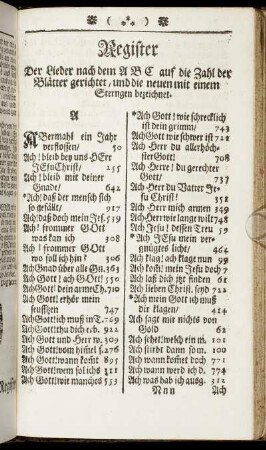 Register
Der Lieder nach dem A B C auf die Zahl der
Blätter gerichtet, und die neuen mit einem
Sterngen bezeichnet.
A
ABermahl ein Jahr
verflossen/ 50
Ach! bleib bey uns HErr
JEsu Christ/ 255
Ach! bleib mit deiner
Gnade/ 642
*Ach! daß der mensch sich
so gefält/ 917
Ach! daß doch mein Jes. 519
Ach! frommer GOtt
was kan ich 308
Ach! frommer GOtt
wo soll ich hin/ 306
Ach Gnad über alle Gn. 363
Ach GOtt! ach GOtt! 550
Ach Gott! dein arme Ch. 710
Ach GOtt! erhör mein
seuffzen 747
Ach Gott! ich muß in T. 769
Ach Gott! thu dich erb. 922
Ach GOtt und Herr w. 309
Ach Gott! vom himel s. 386
Ach GOtt! wann komt 895
Ach GOtt! wem sol ichs 811
Ach Gott! wie manches 553
*Ach Gott! wie schrecklich
ist dein grimm/ 743
Ach Gott wie schwer ist 721
Ach Herr du allerhöch-
ster Gott! 708
Ach Herre! du gerechter
Gott/ 737
Ach Herr du Vatter Je-
su Christ! 351
Ach Herr mich armen 349
Ach Herr wie lange wilt 748
Ach Jesu! dessen Treu 59
*Ach JEsu mein ver-
gnügtes licht/ 464
Ach klag! ach klage nun 99
Ach kom! mein Jesu doch 71
Ach laß dich itzt finden 61
Ach lieben Christ. seyd 721
*Ach mein GOtt ich muß
dir klagen/ 414
Ach sagt mir nichts von
Gold 62
Ach schet! welch ein m. 101
Ach stirbt dann som. 104
Ach wann komet doch 771
Ach wann werd ich d. 771
Ach was hab ich ausg. 312
Nnn Ach